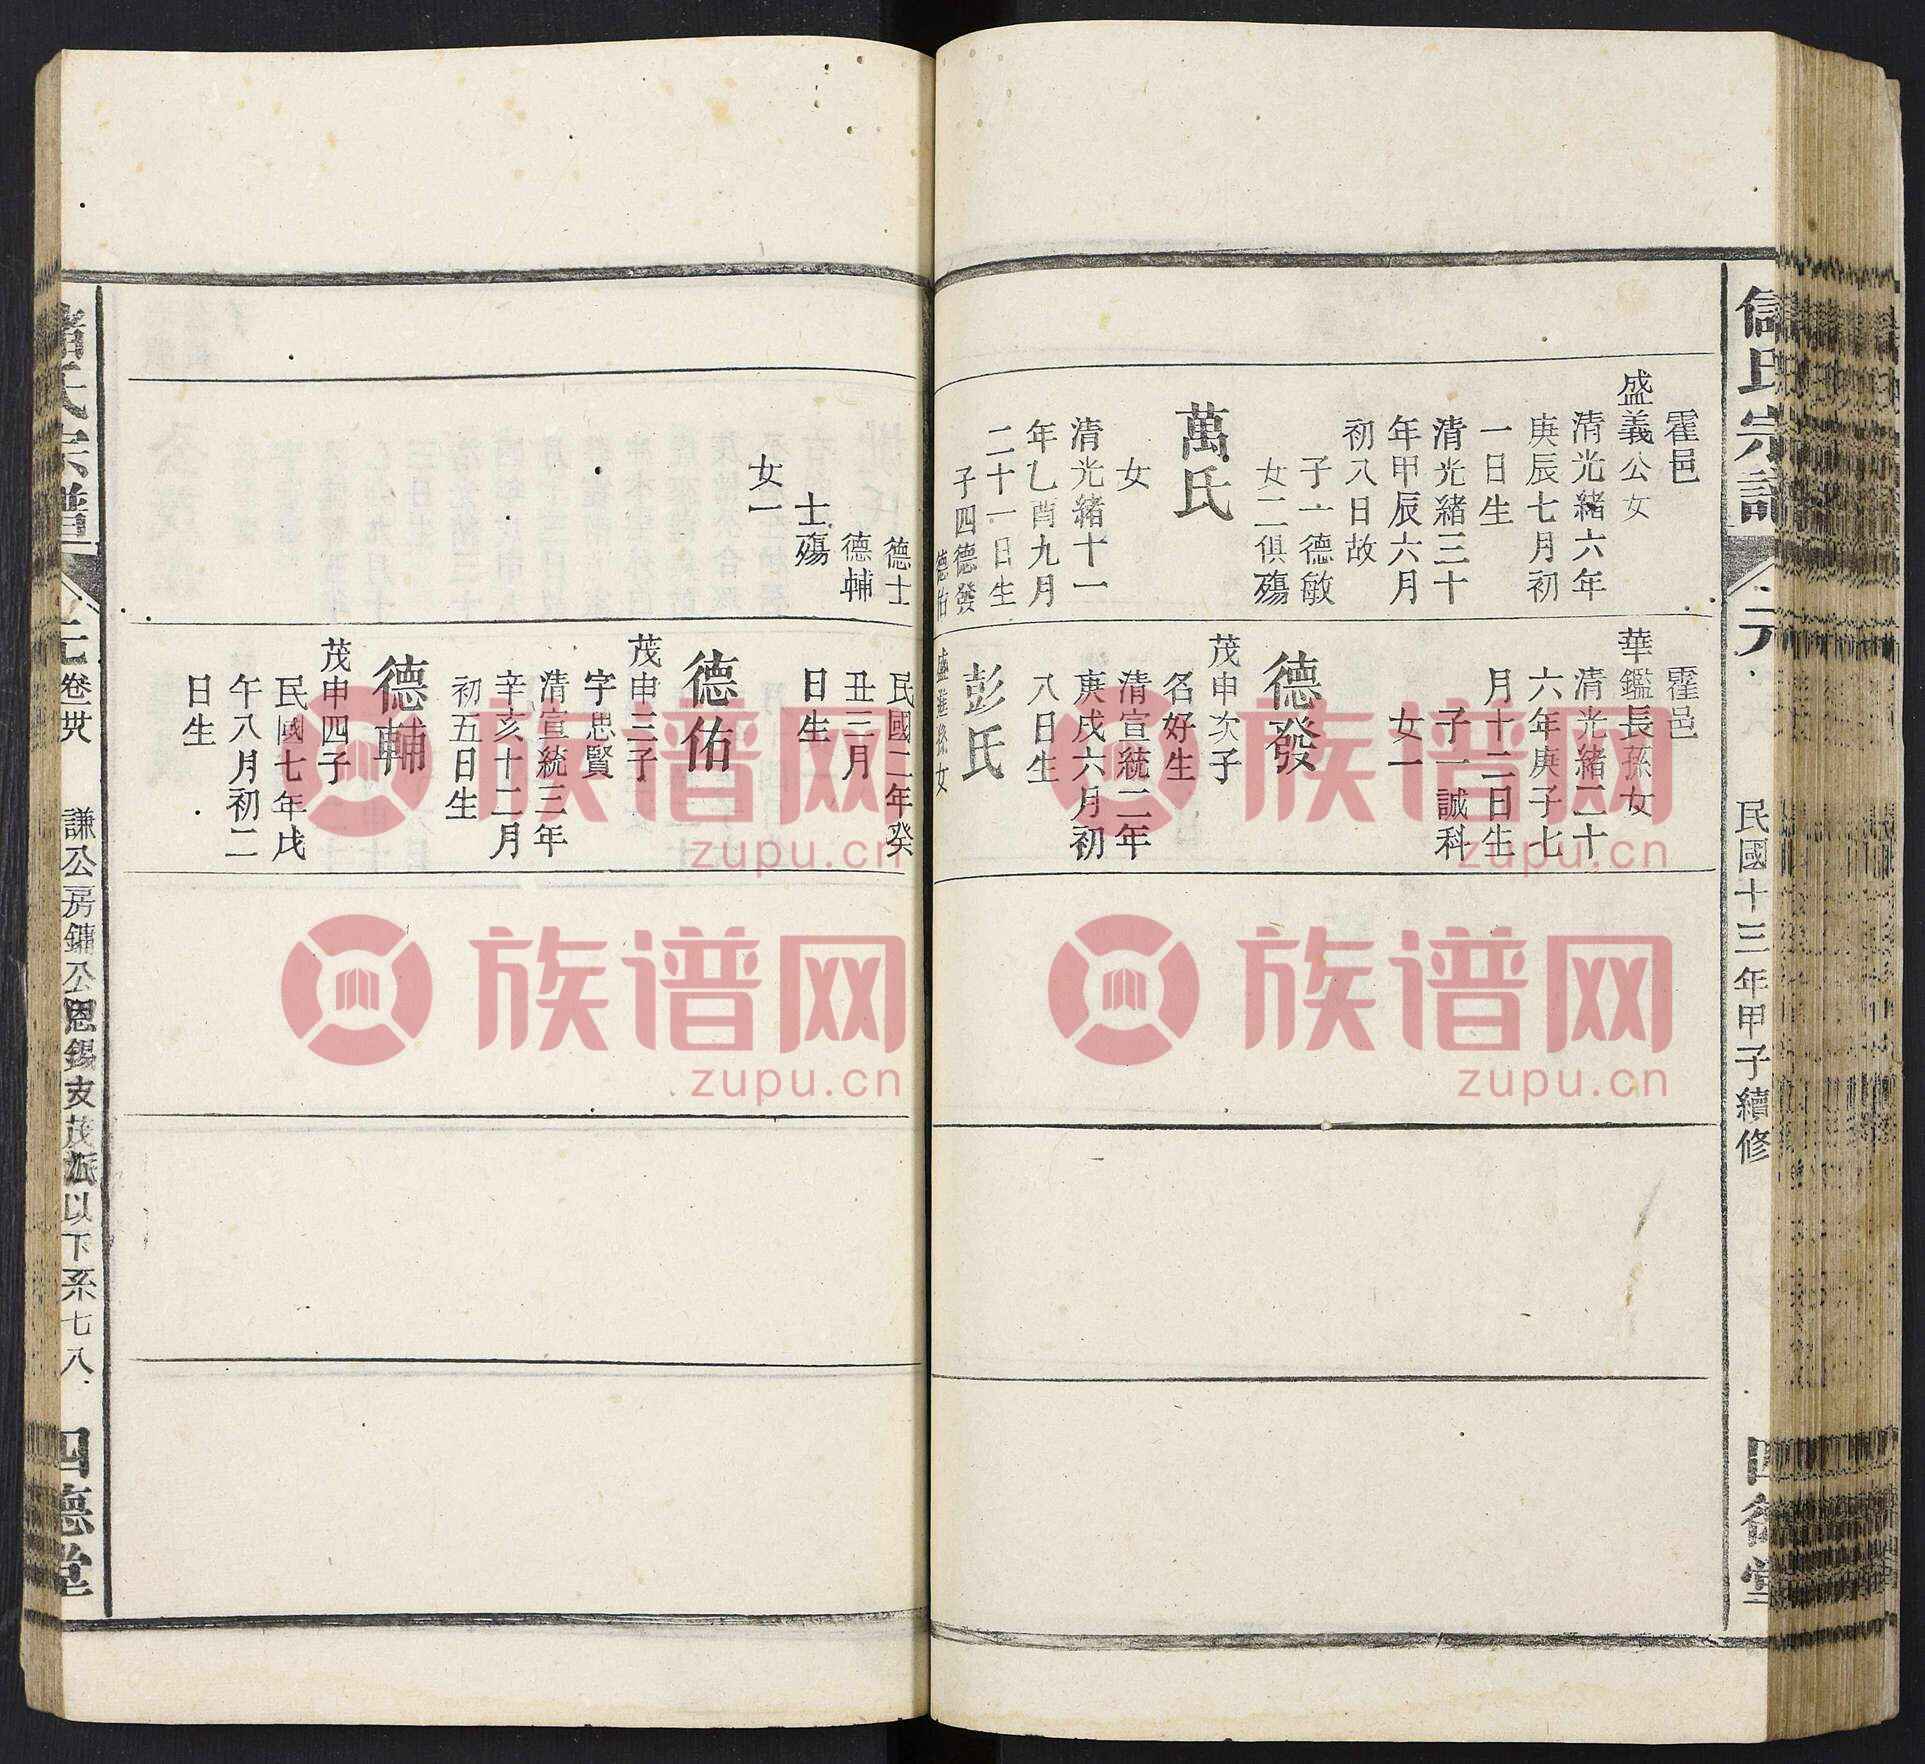 民國十三年甲子續修
霍邑
盛義公女
清光緒六年
庚辰七月初
一日生
清光緒三十
年甲辰六月
初八日故
子一德敏
女二俱殤
萬氏
女
清光緒十一
年乙酉九月
二十一日生
子四德發
德佑
霍邑
華鑑長孫女
清光緒二十
六年庚子七
月十二日生
子一誠科
女一
德發
茂申次子
名好生
清宣統二年
庚戌六月初
八日生
彭氏
孫女
德士
德輔
士殤
女一
民國二年癸
丑三月
日生
德佑
茂申三子
字思賢
清宣統三年
辛亥十二月
初五日生
德輔
茂申四子
民國七年戊
午八月初二
日生
氏宗譜
卷廿八
謙公房鏞公恩錫支茂派以下系七八
四德堂
族谱网
zupu.cn
族谱网
zupu.cn
族谱网
zupu.cn
族谱网
zupu.cn